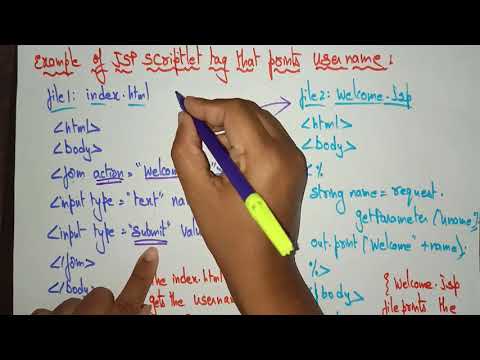 Example of JSP scriptlet tag that prints username:
file1: index.html
<html>
<body>
<form action = "Welcome
<input type = "text" na
<input type = "submit" valu
</form>
</body>
the index.html
gets the username
file2: Welcome.Jsp
<html>
<body>
<%
string name = request.
getParameter("uname");
out.print("Welcome" + name);
%>
</body>
{ Welcome.Jsp
file prints the